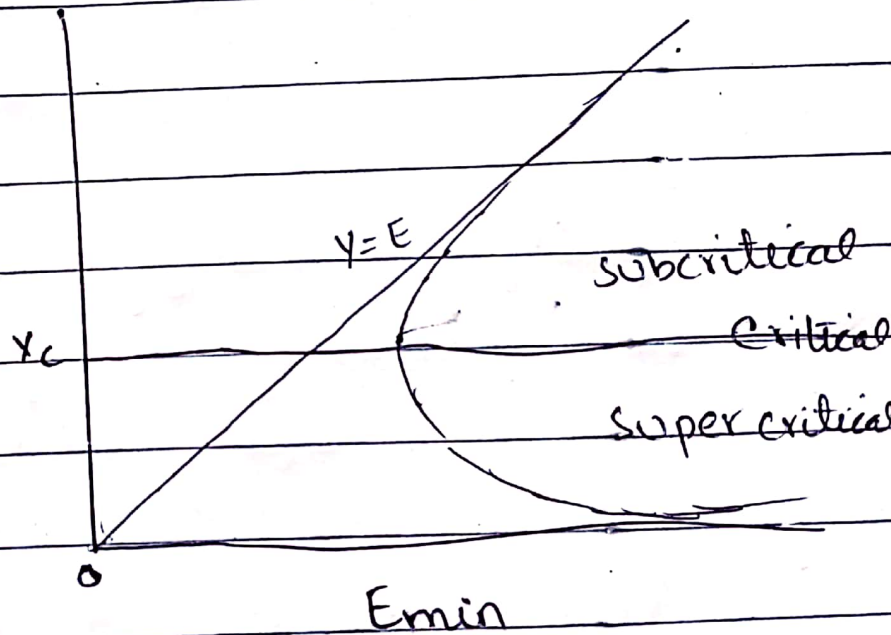 Y=E
subcritical
Yc
Critical
Super critical
0
Emin